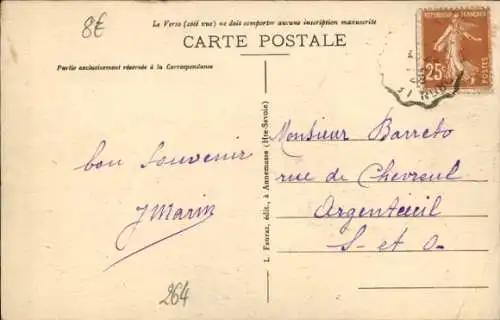 8€
Le Verso (côté vue) ne doit comporter aucune inscription manuscrite
CARTE POSTALE
Partie exclusivement réservée à la Correspondance
RÉPUBLIQUE FRANÇAISE
25c
POSTES
bon souvenir
J Marin
264
L. Fauraz, édit., à Annemasse (Hte-Savoie)
Monsieur Barreto
rue de Chevreul
Argenteuil
S- et O-